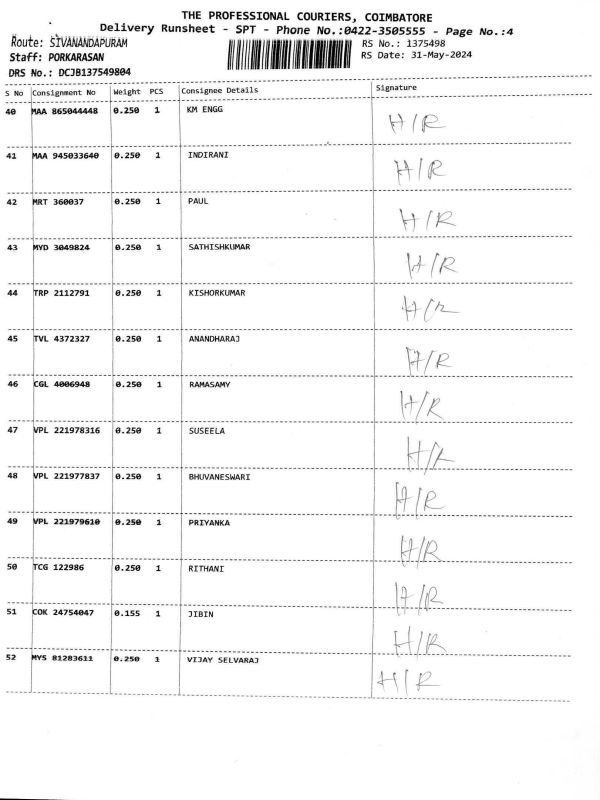 THE PROFESSIONAL COURIERS, COIMBATORE
Delivery Runsheet - SPT - Phone No.:0422-3505555 - Page No.:4
Route: SIVANANDAPURAM RS No.: 1375498
Staff: PORKARASAN RS Date: 31-May-2024
DRS No.: DCJB137549804
S No Consignment No Weight PCS Consignee Details Signature
40 MAA 865044448 0.250 1 KM ENGG H/R
41 MAA 945033640 0.250 1 INDIRANI H/R
42 MRT 360037 0.250 1 PAUL H/R
43 MYD 3049824 0.250 1 SATHISHKUMAR H/R
44 TRP 2112791 0.250 1 KISHORKUMAR H/R
45 TVL 4372327 0.250 1 ANANDHARAJ H/R
46 CGL 4006948 0.250 1 RAMASAMY H/R
47 VPL 221978316 0.250 1 SUSEELA H/R
48 VPL 221977837 0.250 1 BHUVANESWARI H/R
49 VPL 221979610 0.250 1 PRIYANKA H/R
50 TCG 122986 0.250 1 RITHANI H/R
51 COK 24754047 0.155 1 JIBIN H/R
52 MYS 81283611 0.250 1 VIJAY SELVARAJ H/R